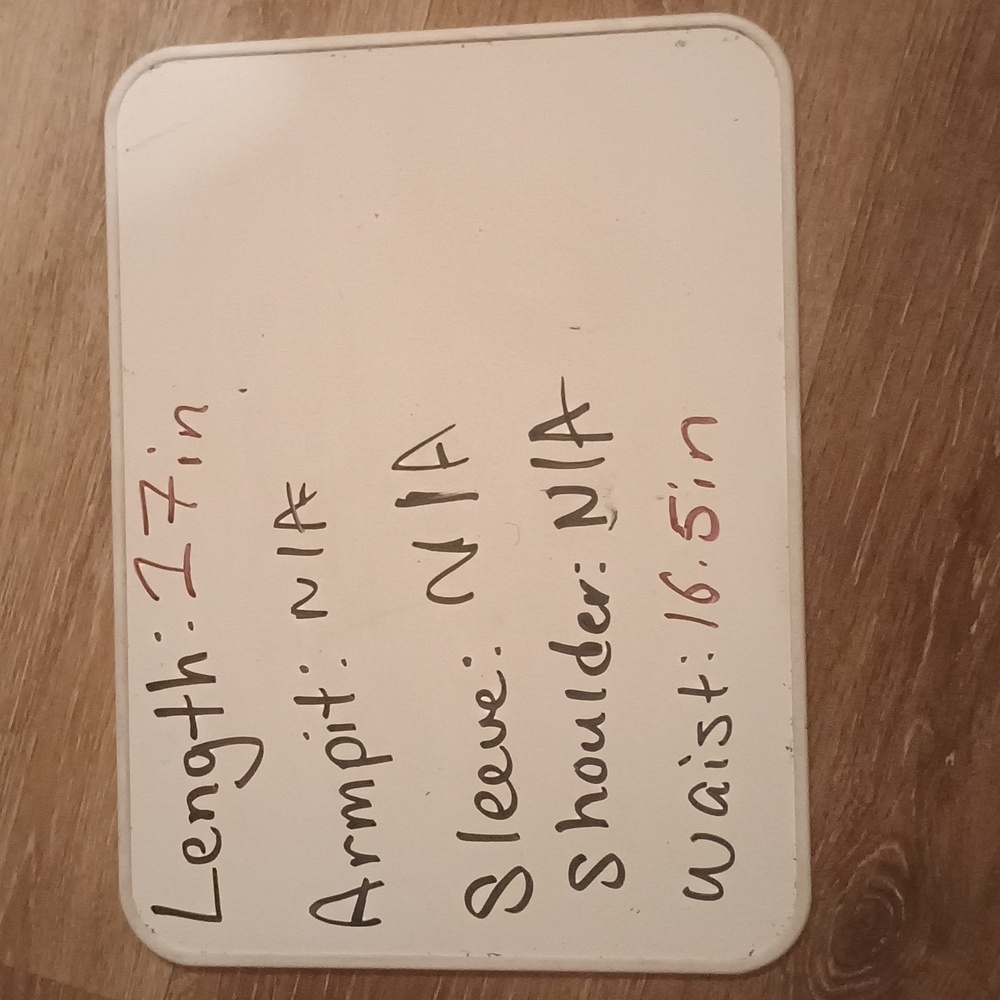 Length: 17in
Armpit: N/A
Sleeve: N/A
Shoulder: N/A
Waist: 16.5in